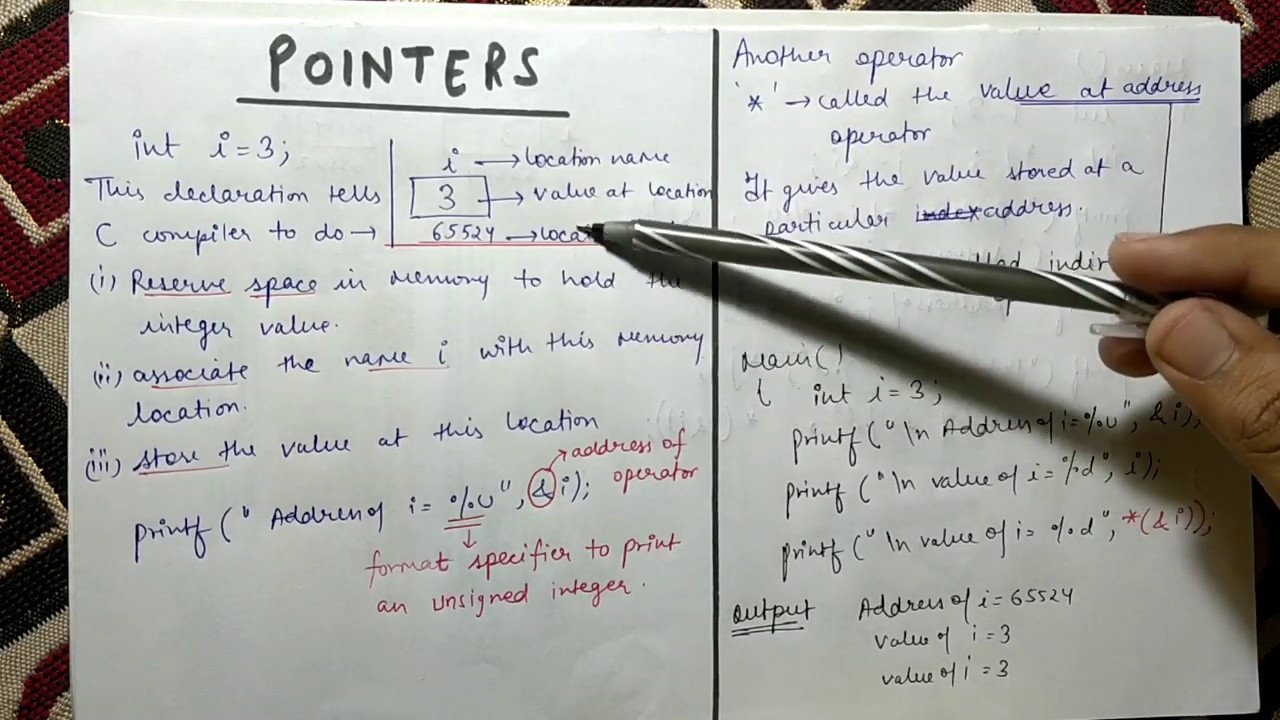 POINTERS
int i = 3;
This declaration tells
C compiler to do →
i → location name
3 → value at location
65524 →
(i) Reserve space in memory to hold the
integer value.
(ii) associate the name i with this memory
location.
(iii) store the value at this location
printf (" Address of i = %u", &i);
address of
operator
format specifier to print
an unsigned integer.
Another operator
'*' → called the value at address
operator
It gives the value stored at a
particular index address.
main()
{ int i = 3;
printf (" \n Address of i = %u", &i);
printf (" \n value of i = %d", i);
printf (" \n value of i = %d", *(&i));
output
Address of i = 65524
value of i = 3
value of i = 3